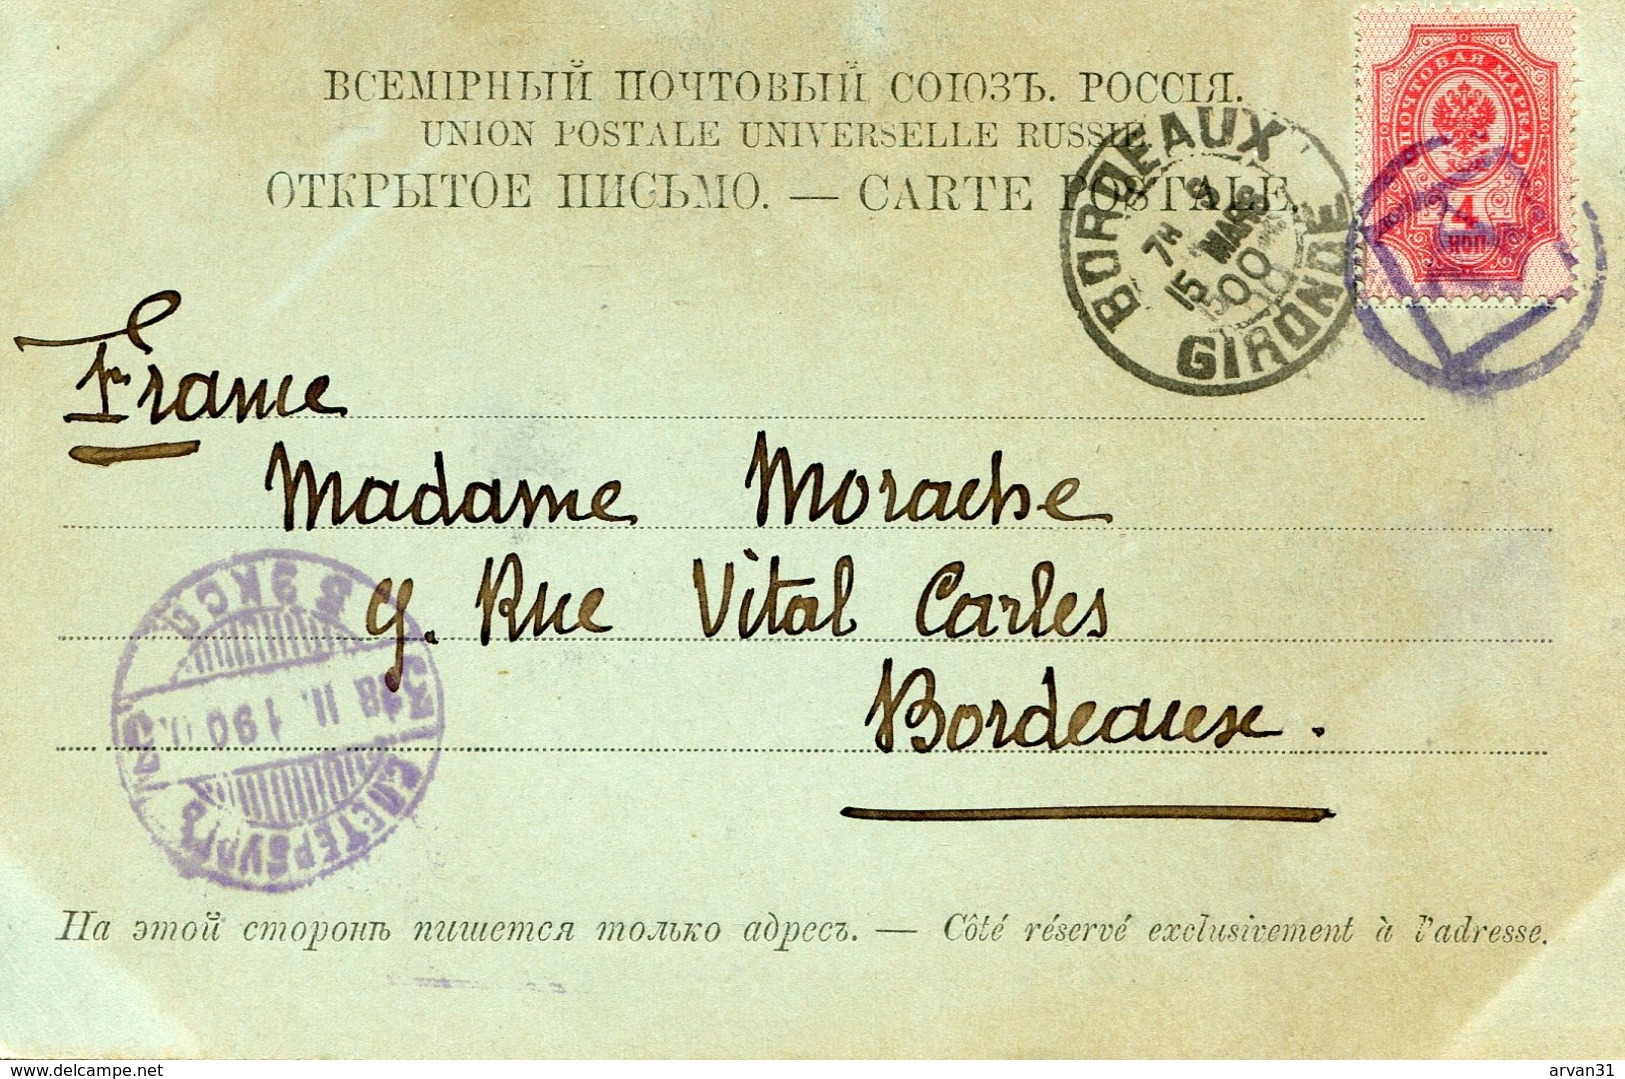 ВСЕМІРНЫЙ ПОЧТОВЫЙ СОЮЗЪ. РОССІЯ.
UNION POSTALE UNIVERSELLE RUSSIE
ОТКРЫТОЕ ПИСЬМО. — CARTE POSTALE.
ПОЧТОВАЯ МАРКА
4
КОП
BORDEAUX
7H 9
15 MARS
00
GIRONDE
France
Madame Morache
9. Rue Vital Carles
Bordeaux.
В ЭКСП
3 18 II. 1900. 3
С ПЕТЕРБУРГЪ
На этой сторонѣ пишется только адресъ. — Côté réservé exclusivement à l'adresse.
www.delcampe.net
arvan31